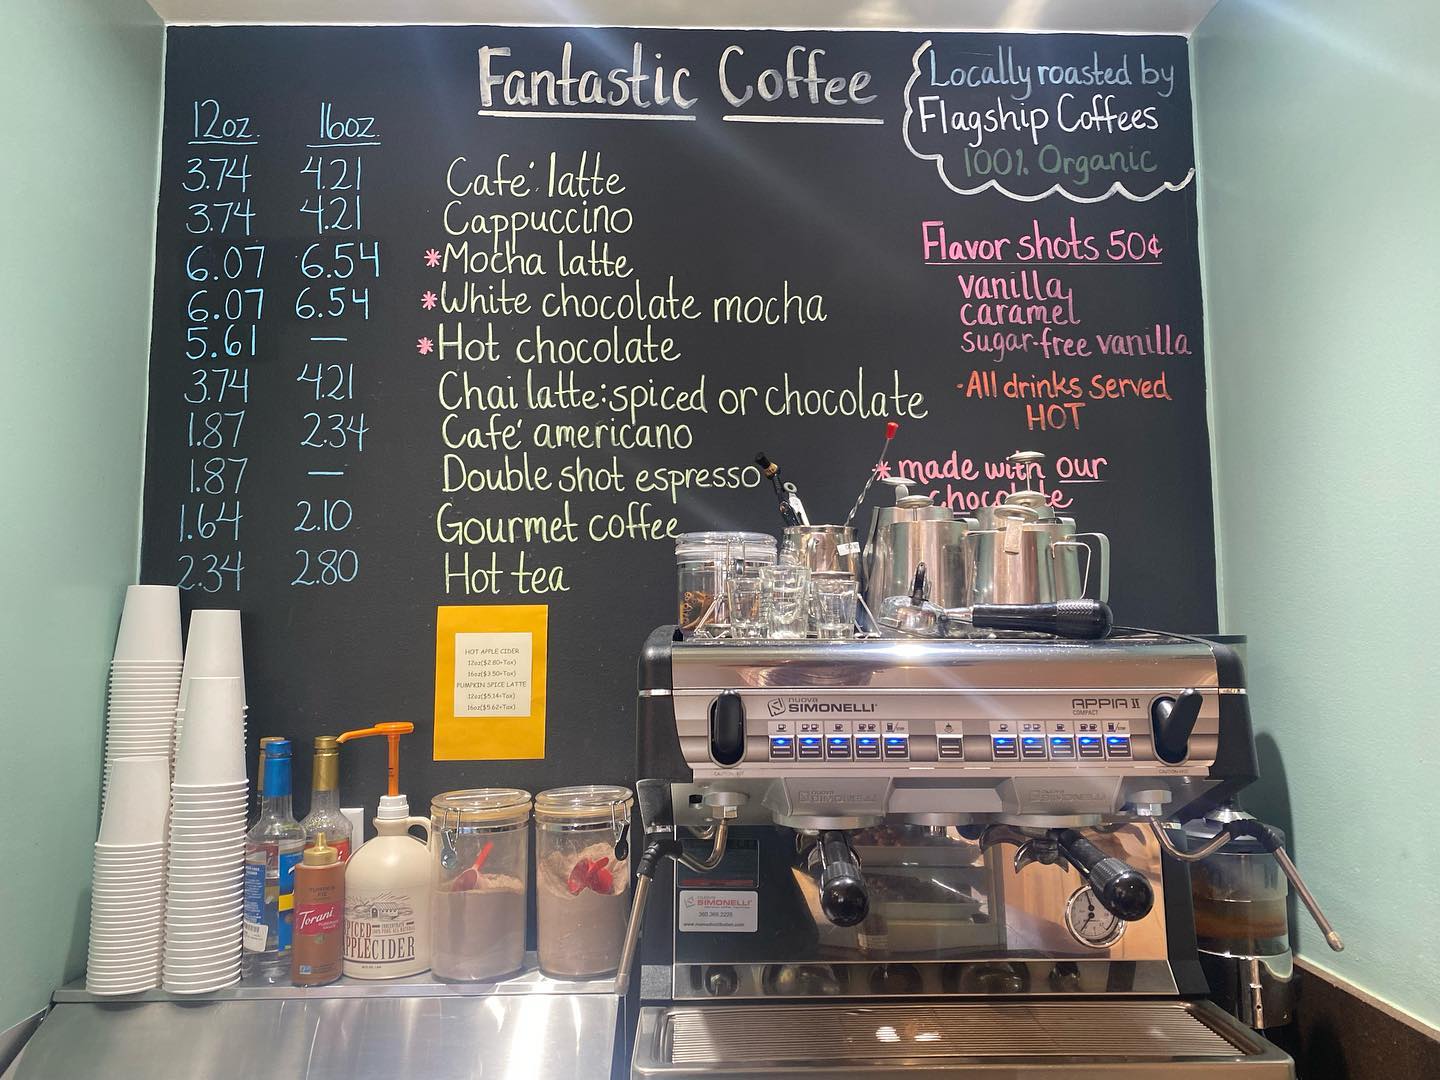 Fantastic Coffee
Locally roasted by
Flagship Coffees
100% Organic
12oz. 16oz.
3.74 4.21 Café latte
3.74 4.21 Cappuccino
6.07 6.54 *Mocha latte
6.07 6.54 *White chocolate mocha
5.61 — *Hot chocolate
3.74 4.21 Chai latte: spiced or chocolate
1.87 2.34 Café americano
1.87 — Double shot espresso
1.64 2.10 Gourmet coffee
2.34 2.80 Hot tea
Flavor shots 50¢
vanilla
caramel
sugar-free vanilla
·All drinks served
HOT
*made with our
chocolate
HOT APPLE CIDER
12oz($2.80+Tax)
16oz($3.50+Tax)
PUMPKIN SPICE LATTE
12oz($5.14+Tax)
16oz($5.62+Tax)
nuova
SIMONELLI
APPIA II
COMPACT
nuova
SIMONELLI
nuova
SIMONELLI
nuova
SIMONELLI
360.366.2226
PUMPKIN
PIE
Torani
SPICED
APPLECIDER